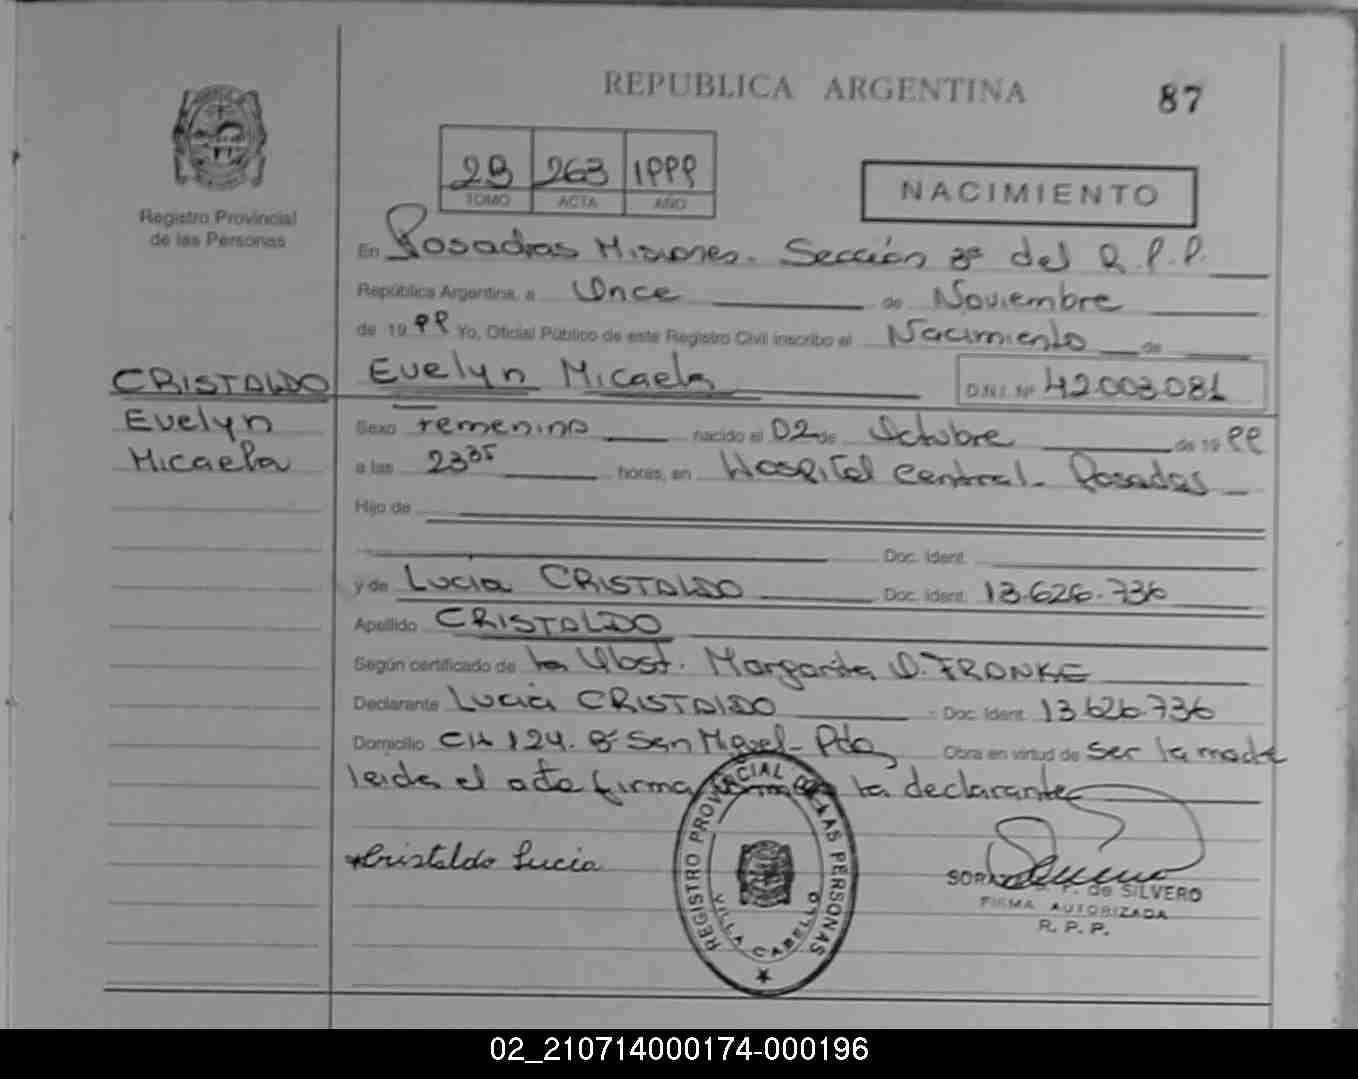 REPUBLICA ARGENTINA
87
Registro Provincial
de las Personas
2B 263 1999
TOMO ACTA AÑO
NACIMIENTO
En Posadas Misiones. Sección 3ª del R.P.P.
República Argentina, a Once de Noviembre
de 19 99 Yo, Oficial Público de este Registro Civil inscribo el Nacimiento de
CRISTALDO Evelyn Micaela D.N.I. Nº 42.003.081
Evelyn
Micaela
Sexo Femenino nacido el 02 de Octubre de 19 99
a las 23 35 horas, en Hospital Central - Posadas
Hijo de
Doc. Ident.
y de Lucia CRISTALDO Doc. Ident. 13.626.736
Apellido CRISTALDO
Según certificado de la Obst. Margarita O. FRANKE
Declarante Lucia CRISTALDO Doc. Ident. 13.626.736
Domicilio CH 124. Bº San Miguel - Pdas Obra en virtud de ser la madre
leida el acta firma la declarante
Cristaldo Lucia
REGISTRO PROVINCIAL DE LAS PERSONAS
VILLA CABELLO
F. de SILVERO
FIRMA AUTORIZADA
R. P. P.
02_210714000174-000196